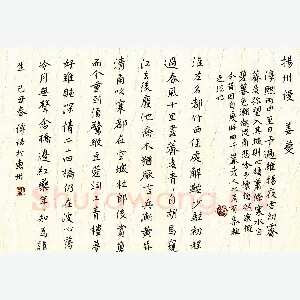 揚州慢 姜夔
淳熙丙申至日予過維揚夜雪初霽
薺麥彌望入其城則四顧蕭條寒水自
碧暮色漸起戍角悲吟予懷愴然感慨
今昔因自度此曲千巖老人以為有黍離
之悲也
淮左名都竹西佳處解鞍少駐初程
過春風十里盡薺麥青青自胡馬窺
江去後廢池喬木猶厭言兵漸黃昏
清角吹寒都在空城杜郎俊賞算
而今重到須驚縱豆蔻詞工青樓夢
好難賦深情二十四橋仍在波心蕩
冷月無聲念橋邊紅藥年年知為誰
生 己丑春